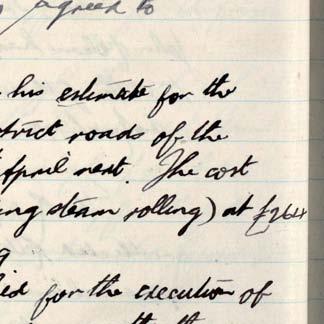 agreed to
his estimate for the
strict roads of the
April next. The cost
ing steam rolling) at £264
ied for the execution of
the